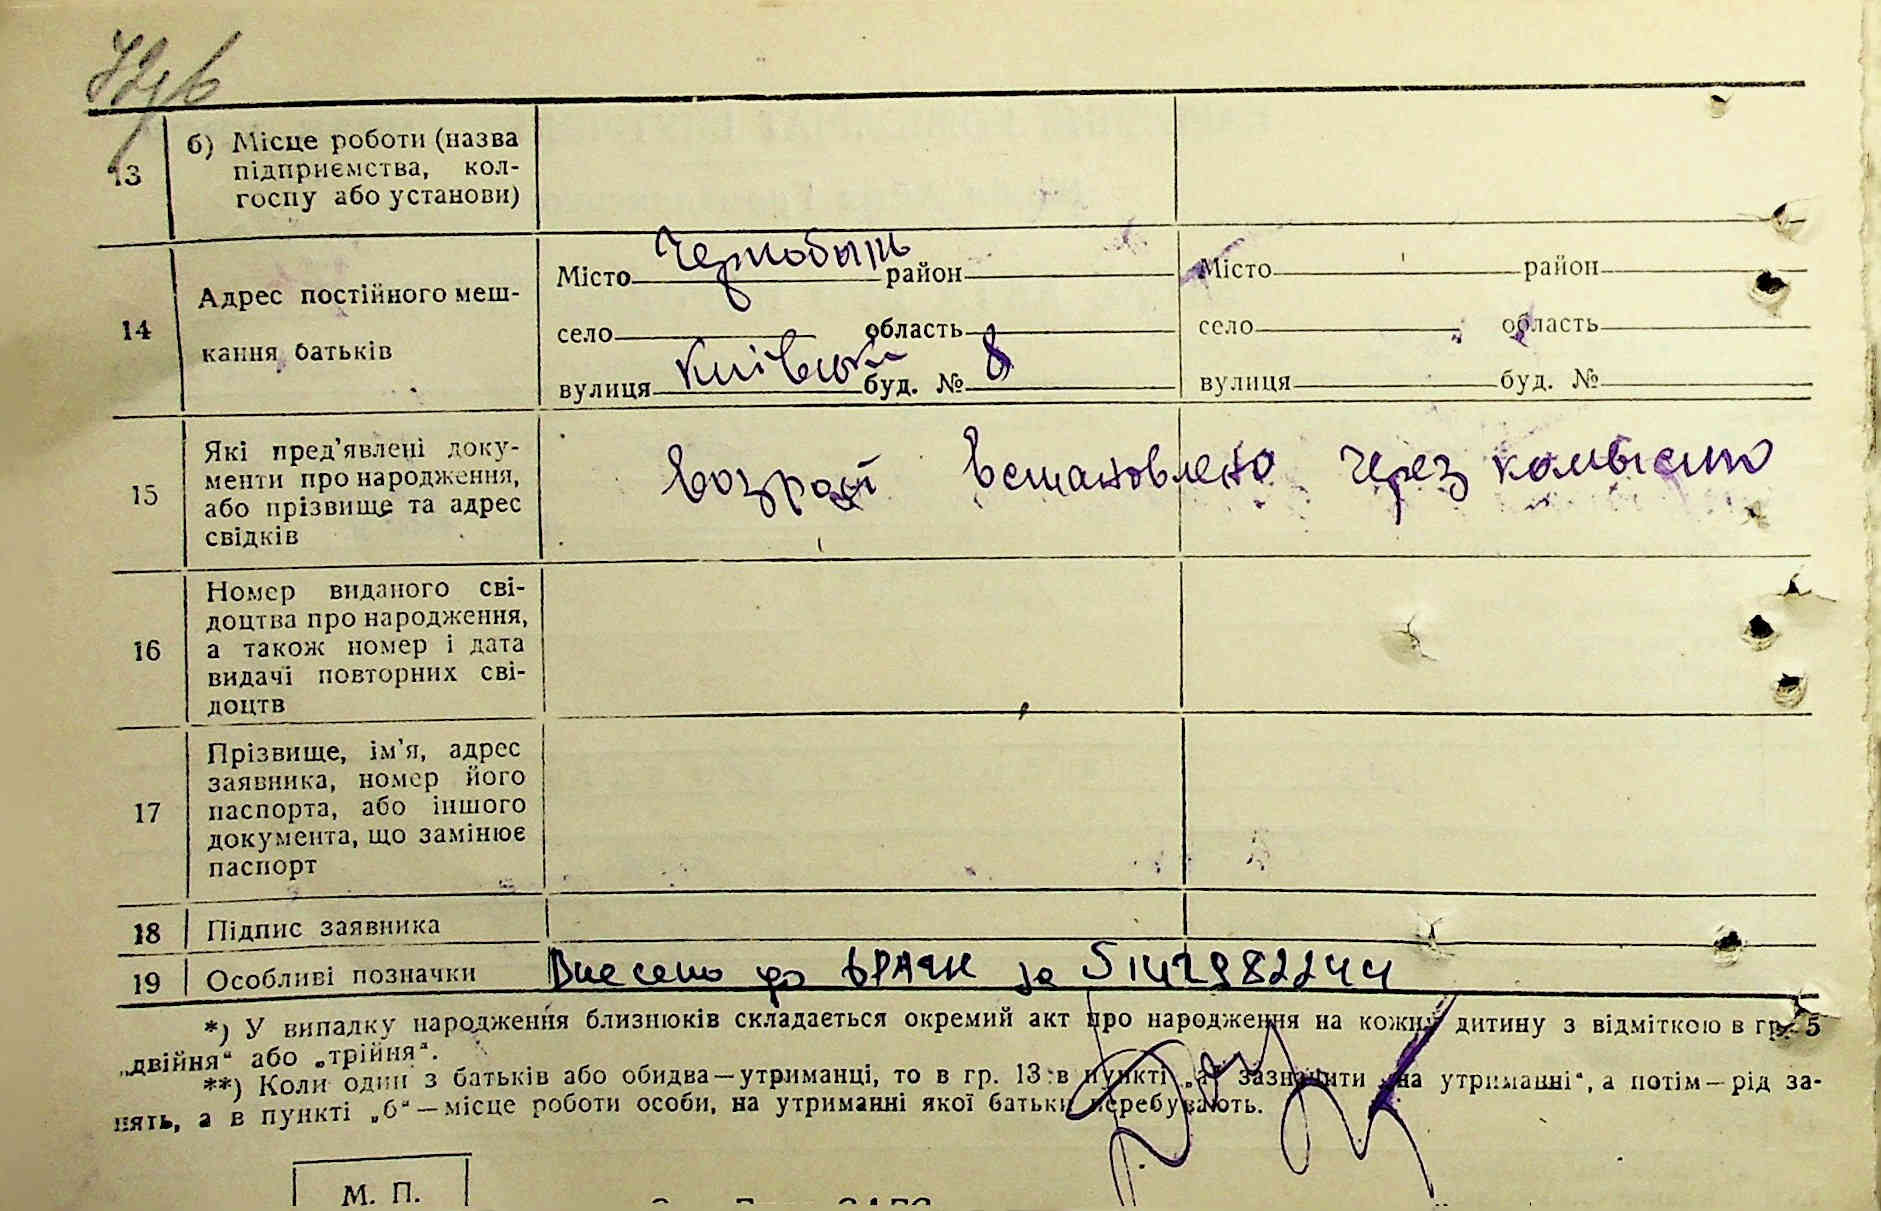 13
б) Місце роботи (назва
підприємства, кол-
госпу або установи)
14
Адрес постійного меш-
кання батьків
Місто Чернобыль район
село область
вулиця Київська буд. № 8
Місто район
село область
вулиця буд. №
15
Які пред’явлені доку-
менти про народження,
або прізвище та адрес
свідків
Возраст встановлено через комысию
16
Номер виданого сві-
доцтва про народження,
а також номер і дата
видачі повторних сві-
доцтв
17
Прізвище, ім’я, адрес
заявника, номер його
паспорта, або іншого
документа, що замінює
паспорт
18
Підпис заявника
19
Особливі позначки
Внесено до ДРАЦС за
*) У випадку народження близнюків складається окремий акт про народження на кожну дитину з відміткою в гр. 5
„двійня“ або „трійня“.
**) Коли один з батьків або обидва—утриманці, то в гр. 13 в пункті „а“ зазначити „на утриманні“, а потім—рід за-
нять, а в пункті „б“—місце роботи особи, на утриманні якої батьки перебувають.
М. П.